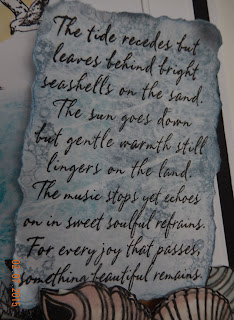 The tide recedes but
leaves behind bright
seashells on the sand.
The sun goes down
but gentle warmth still
lingers on the land.
The music stops yet echoes
on in sweet soulful refrains.
For every joy that passes,
something beautiful remains.